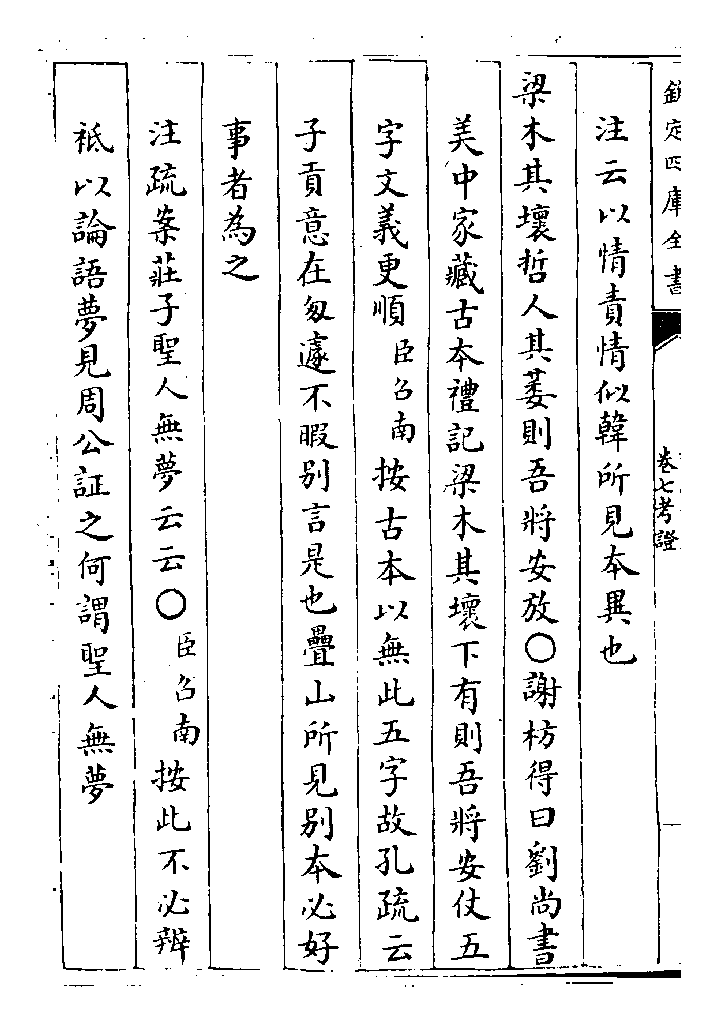 欽定四庫全書
卷七考證
注云以情責情似韓所見本異也
梁木其壞哲人其萎則吾將安放〇謝枋得曰劉尚書
美中家藏古本禮記梁木其壞下有則吾將安仗五
字文義更順臣召南按古本以無此五字故孔疏云
子貢意在匆遽不暇別言是也疊山所見別本必好
事者為之
注疏案莊子聖人無夢云云〇臣召南按此不必辨
祗以論語夢見周公証之何謂聖人無夢